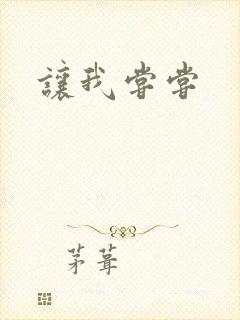 讓我嘗嘗
茅葺